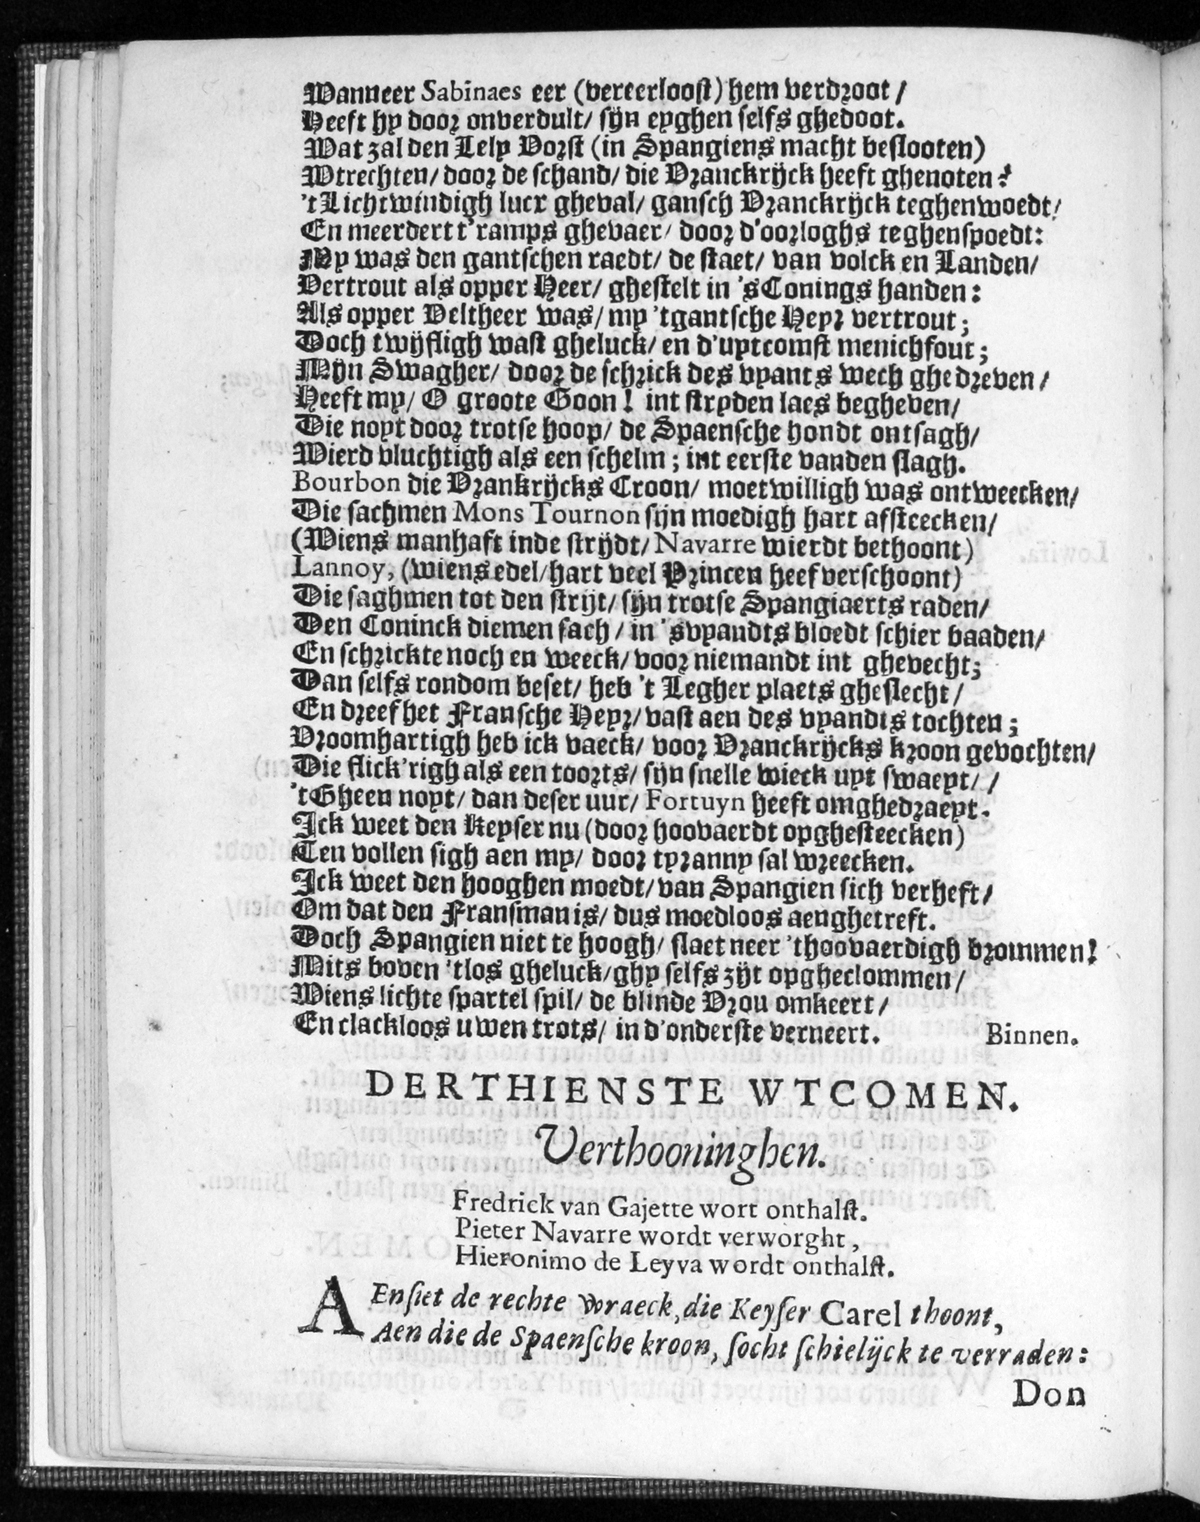 Wanneer Sabinaes eer (vereerloost) hem verdroot /
Heeft hy door onverdult/ sijn eyghen selfs ghedoot.
Wat zal den Lely Vorst (in Spangiens macht beslooten)
Wtrechten/ door de schand/ die Vranckrijck heeft ghenoten?
't Lichtwindigh lucx gheval/ gansch Vranckrijck teghenwoedt/
En meerdert t'ramps ghevaer/ door d'oorloghs teghenspoedt:
My was den gantschen raedt/ de staet/ van volck en Landen/
Vertrout als opper Heer/ ghestelt in 's Conings handen:
Als opper Veltheer was/ my 'tgantsche Heyr vertrout;
Doch twijfligh wast gheluck/ en d'uytcomst menichfout;
Mijn Swagher/ door de schrick des vyants wech ghedreven/
Heeft my/ O groote Goon! int stryden laes begheven/
Die noyt door trotse hoop/ de Spaensche hondt ontsagh/
Wierd vluchtigh als een schelm; int eerste vanden slagh.
Bourbon die Vrankrijcks Croon/ moetwilligh was ontweecken/
Die sachmen Mons Tournon sijn moedigh hart afsteecken/
(Wiens manhaft inde strijdt/ Navarre wierdt bethoont)
Lannoy, (wiens edel/hart veel Princen heef verschoont)
Die saghmen tot den strijt/ sijn trotse Spangiaerts raden/
Den Coninck diemen sach/ in 'svyandts bloedt schier baaden/
En schrickte noch en weeck/ voor niemandt int ghevecht;
Dan selfs rondom beset/ heb 't Legher plaets gheslecht/
En dreef het Fransche Heyr/ vast aen des vyandts tochten;
Vroomhartigh heb ick vaeck/ voor Vranckrijcks kroon gevochten/
Die flick'righ als een toorts/ sijn snelle wieck uyt swaeyt/ /
't Gheen noyt/ dan deser uur/ Fortuyn heeft omghedraeyt.
Ick weet den Keyser nu (door hoovaerdt opghesteecken)
Ten vollen sigh aen my/ door tyranny sal wreecken.
Ick weet den hooghen moedt/ van Spangien sich verheft/
Om dat den Fransman is/ dus moedloos aenghetreft.
Doch Spangien niet te hoogh/ slaet neer 'thoovaerdigh brommen!
Mits boven 'tlos gheluck/ghy selfs zijt opgheclommen/
Wiens lichte spartel spil/ de blinde Vrou omkeert/
En clackloos uwen trots/ in d'onderste verneert. Binnen.
DERTHIENSTE WTCOMEN.
Verthooninghen.
Fredrick van Gajette wort onthalst.
Pieter Navarre wordt verworght,
Hieronimo de Leyva wordt onthalst.
AEnsiet de rechte wraeck, die Keyser Carel thoont,
Aen die de Spaensche kroon, socht schielijck te verraden:
Don